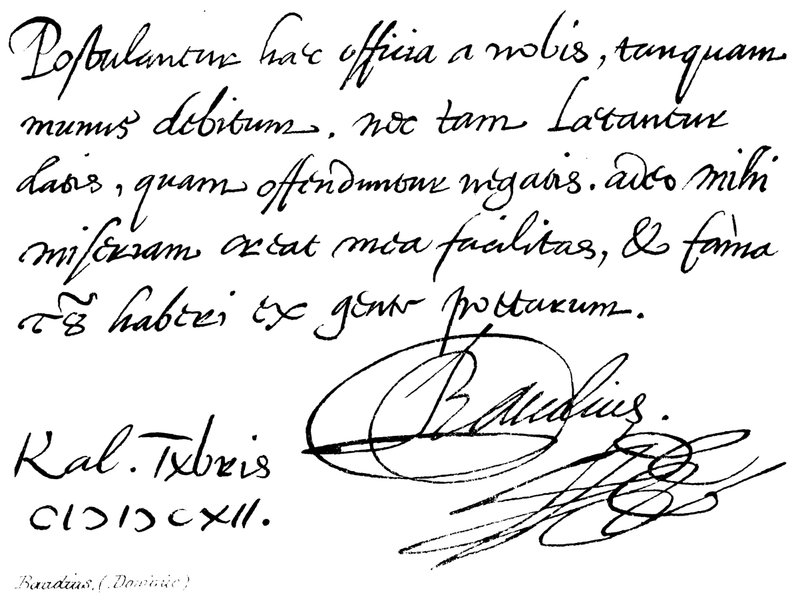 Postulantur haec officia a nobis, tanquam
munus debitum. nec tam Laetantur
datis, quam offenduntur negatis. adeo mihi
miseriam creat mea facilitas, & fama
τȣ̃ haberi ex gente poetarum.
Baudius.
Kal. IXbris
CIↃIↃCXII.
Baudius, (Dominic)